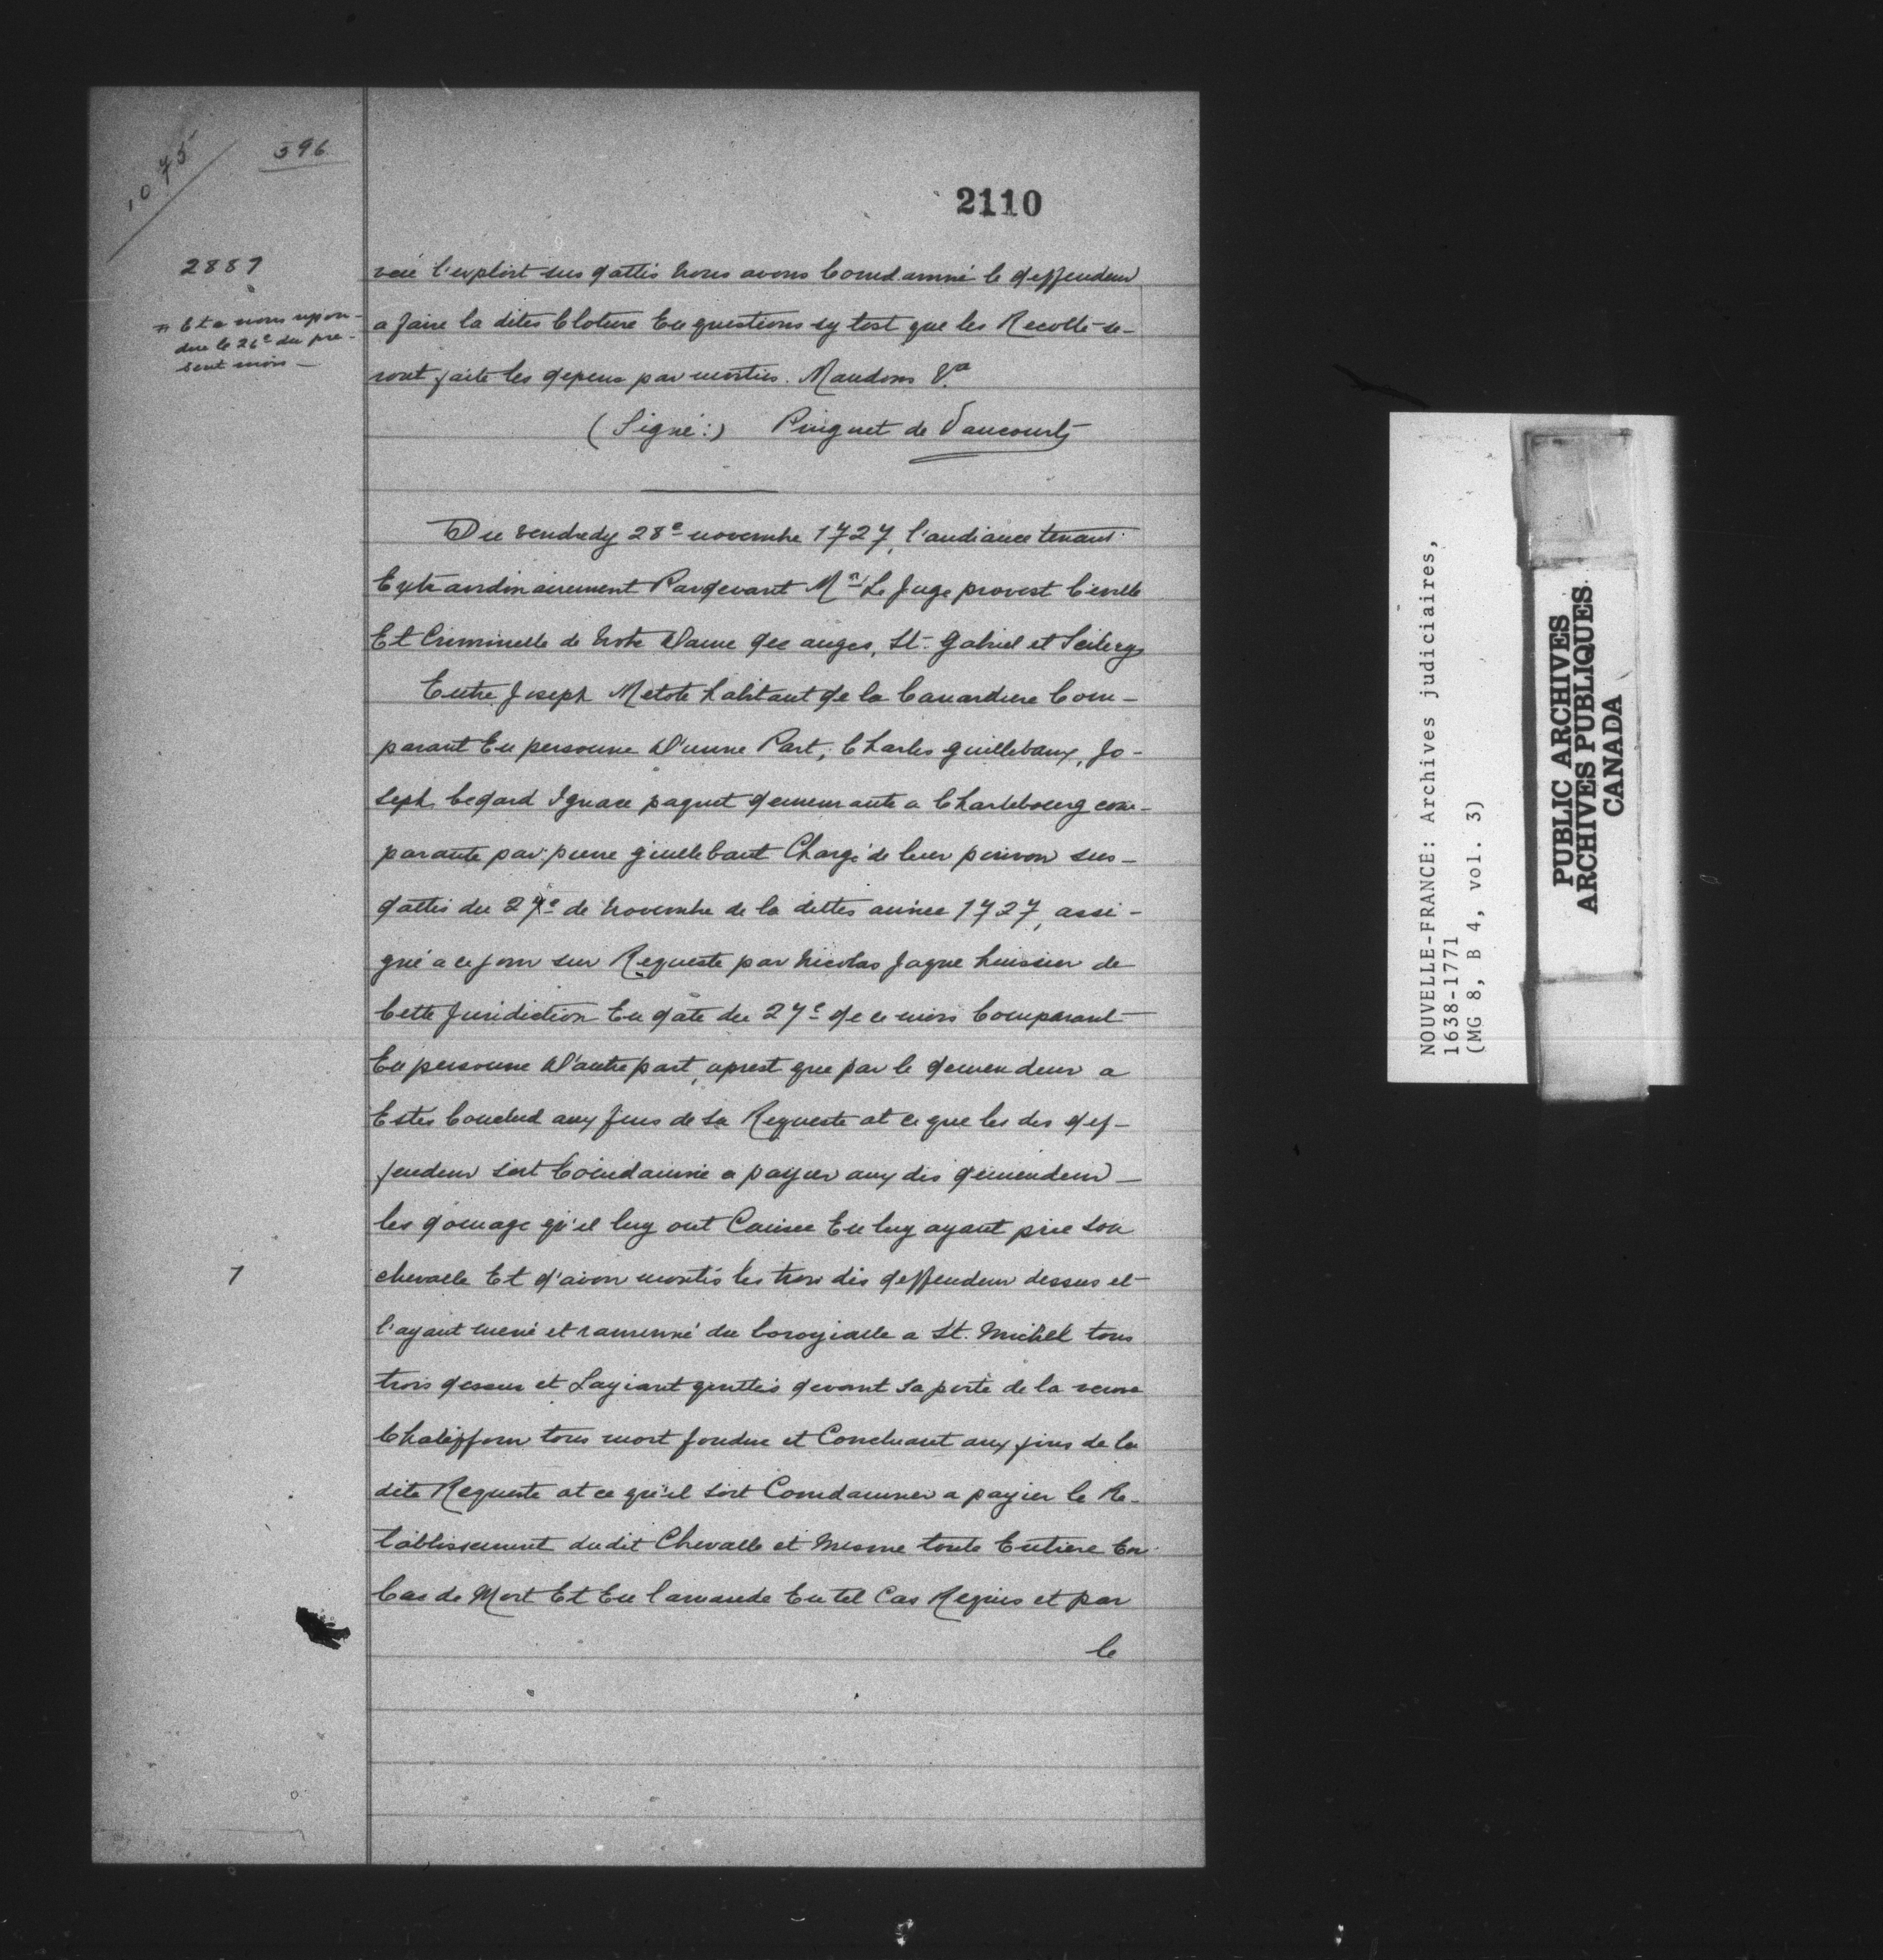 1075
396
2110
2887
# Et a nous repon-
due le 26e du pre-
sent mois —
veüe l'exploit sus dattés Nous avons Comdamné le deffendeur
a faire la dites Cloture En questions sy tost que les Recolté se-
ront faite les depens par moitiés. Mandons &a
(Signé:) Pinguet de Vaucourt
Du Vendredy 28e novembre 1727, l'audiance tenant
Extraordinairement Pardevant Mr Le Juge provost Civille
Et Criminelle de Notre Dame des anges, St. Gabriel et Scilery
Entre Joseph Metote habitant de la Canardiere Com-
parant En personne D'unne Part; Charles guillebaux, Jo-
seph bedard Ignace paquet demeurante a Charlebourg com-
parante par pierre guillebaut Chargé de leur pouvoir sus-
dattés du 27e de Novembre de la dittes année 1727, assi-
gné a ce jour sur Requeste par Nicolas Jaque huissier de
Cette Juridiction En date du 27e de ce mois Comparant
En personne D'autre part, aprest que par le demendeur a
Estés Conclud aux fins de sa Requeste at ce que les dis def-
fendeur soit Comdamné a payer aux dis demendeur —
les domage qu'il luy ont Causee En luy ayant prie son
1
chevalle Et d'avoir montés les trois dis deffendeur dessus et
l'ayant mené et ramenné du a St. Michel tous
trois dessus et Layiant quittés devant sa porte de la veuve
tous mort fondue et Concluant aux fins de la
dite Requeste at ce qu'il soit Comdamner a payier le Re-
tablissement dudit Chevalle et Mesme toute Entiere En
Cas de Mort Et En l'amande En tel Cas Requis et par
le
NOUVELLE-FRANCE: Archives judiciaires,
1638-1771
(MG 8, B 4, vol. 3)
PUBLIC ARCHIVES
ARCHIVES PUBLIQUES
CANADA